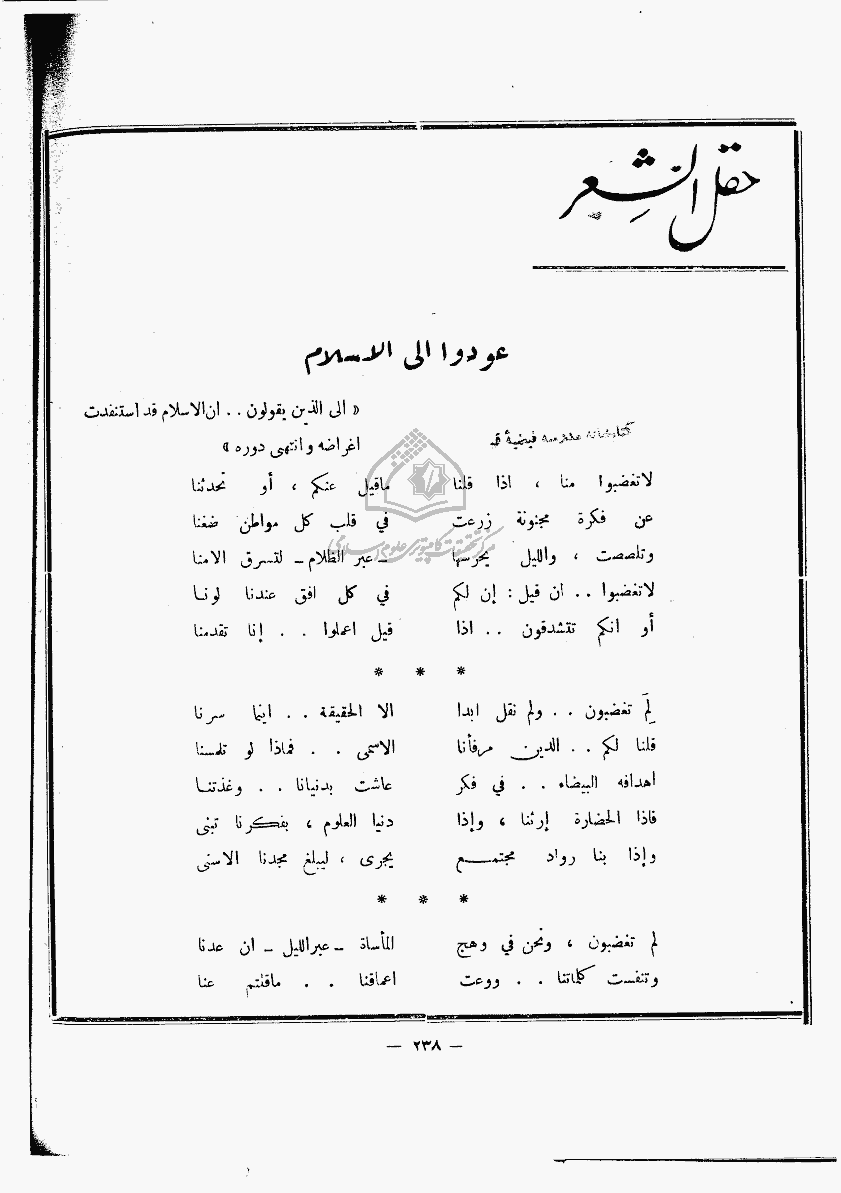 حقل الشعر
عودوا الى الاسلام
« الى الذين يقولون . . ان الاسلام قد استنفدت
اغراضه وانتهى دوره »
كتابخانه مدرسه فيضيۀ قم
لاتغضبوا منا ، اذا قلنا ماقيل عنكم ، أو تحدثنا
عن فكرة مجنونة زرعت في قلب كل مواطن ضغنا
وتلصصت ، والليل يحرسها ـ عبر الظلام ـ لتسرق الامنا
مركز تحقيقات كامپيوتری علوم اسلامی
لاتغضبوا . . ان قيل : إن لكم في كل افق عندنا لونا
أو انكم تتشدقون . . اذا قيل اعملوا . . إنا تقدمنا
* * *
لِمَ تغضبون . . ولم نقل ابدا الا الحقيقة . . اينما سرنا
قلنا لكم . . الدين مرفأنا الاسمى . . فماذا لو تلمسنا
اهدافه البيضاء . . في فكر عاشت بدنيانا . . وغذتنا
فاذا الحضارة إرثنا ، وإذا دنيا العلوم ، بفكرنا تبنى
وإذا بنا رواد مجتمع يجرى ، ليبلغ مجدنا الاسنى
* * *
لم تغضبون ، ونحن في وهج المأساة ـ عبرالليل ـ ان عدنا
وتنفست كلماتنا . . ووعت اعماقنا . . ماقلتم عنا
— ٢٣٨ —